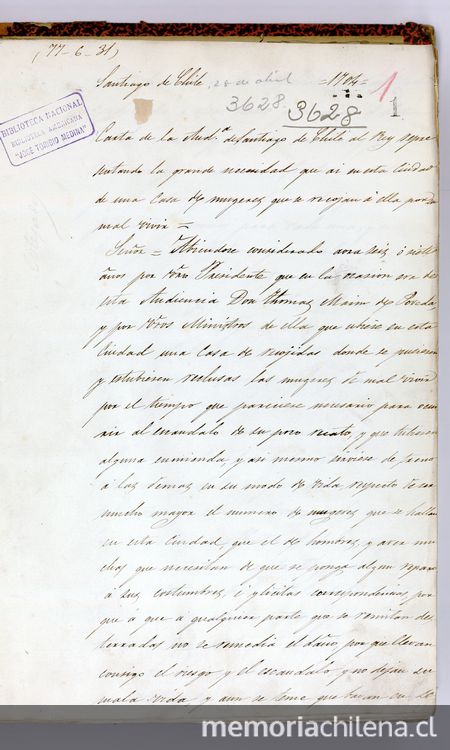 (77-6-31)
Santiago de Chile, 28 de abril =1704=
1
3628 3628 1
BIBLIOTECA NACIONAL
BIBLIOTECA AMERICANA
"JOSÉ TORIBIO MEDINA"
Carta de la Aud.ª de Santiago de Chile al Rey repre
sentando la grande necesidad que ai en esta Ciudad
de una Casa de mugeres que se recojan á ella por su
mal vivir =
Señor = Abiendose considerado avra seis ó siete
años por vtro Presidente que en la ocasion era de
esta Audiencia Don Thomas Marin de Poveda,
y por vtros Ministros de ella que ubiese en esta
Ciudad una Casa de recojidas donde se pusiesen
y estubiesen reclusas las mugeres de mal vivir
por el tiempo que pareciese necesario para
al escandalo de su poco recato, y que tubiesen
alguna enmienda y asi mesmo sirviese de freno
á las demas en su modo de vida respecto de ser
mucho mayor el numero de mugeres que se hallan
en esta Ciudad, que el de hombres, y aver mu
chas que necesitan de que se ponga algun reparo
á sus costumbres é ylicitas correspondencias por
que á que á qualquiera parte que se remitan des
terradas no se remedia el daño, por que llevan
consigo el riesgo y el escandalo y no dejan su
mala vida, y aun se teme que vivan en
memoriachilena.cl